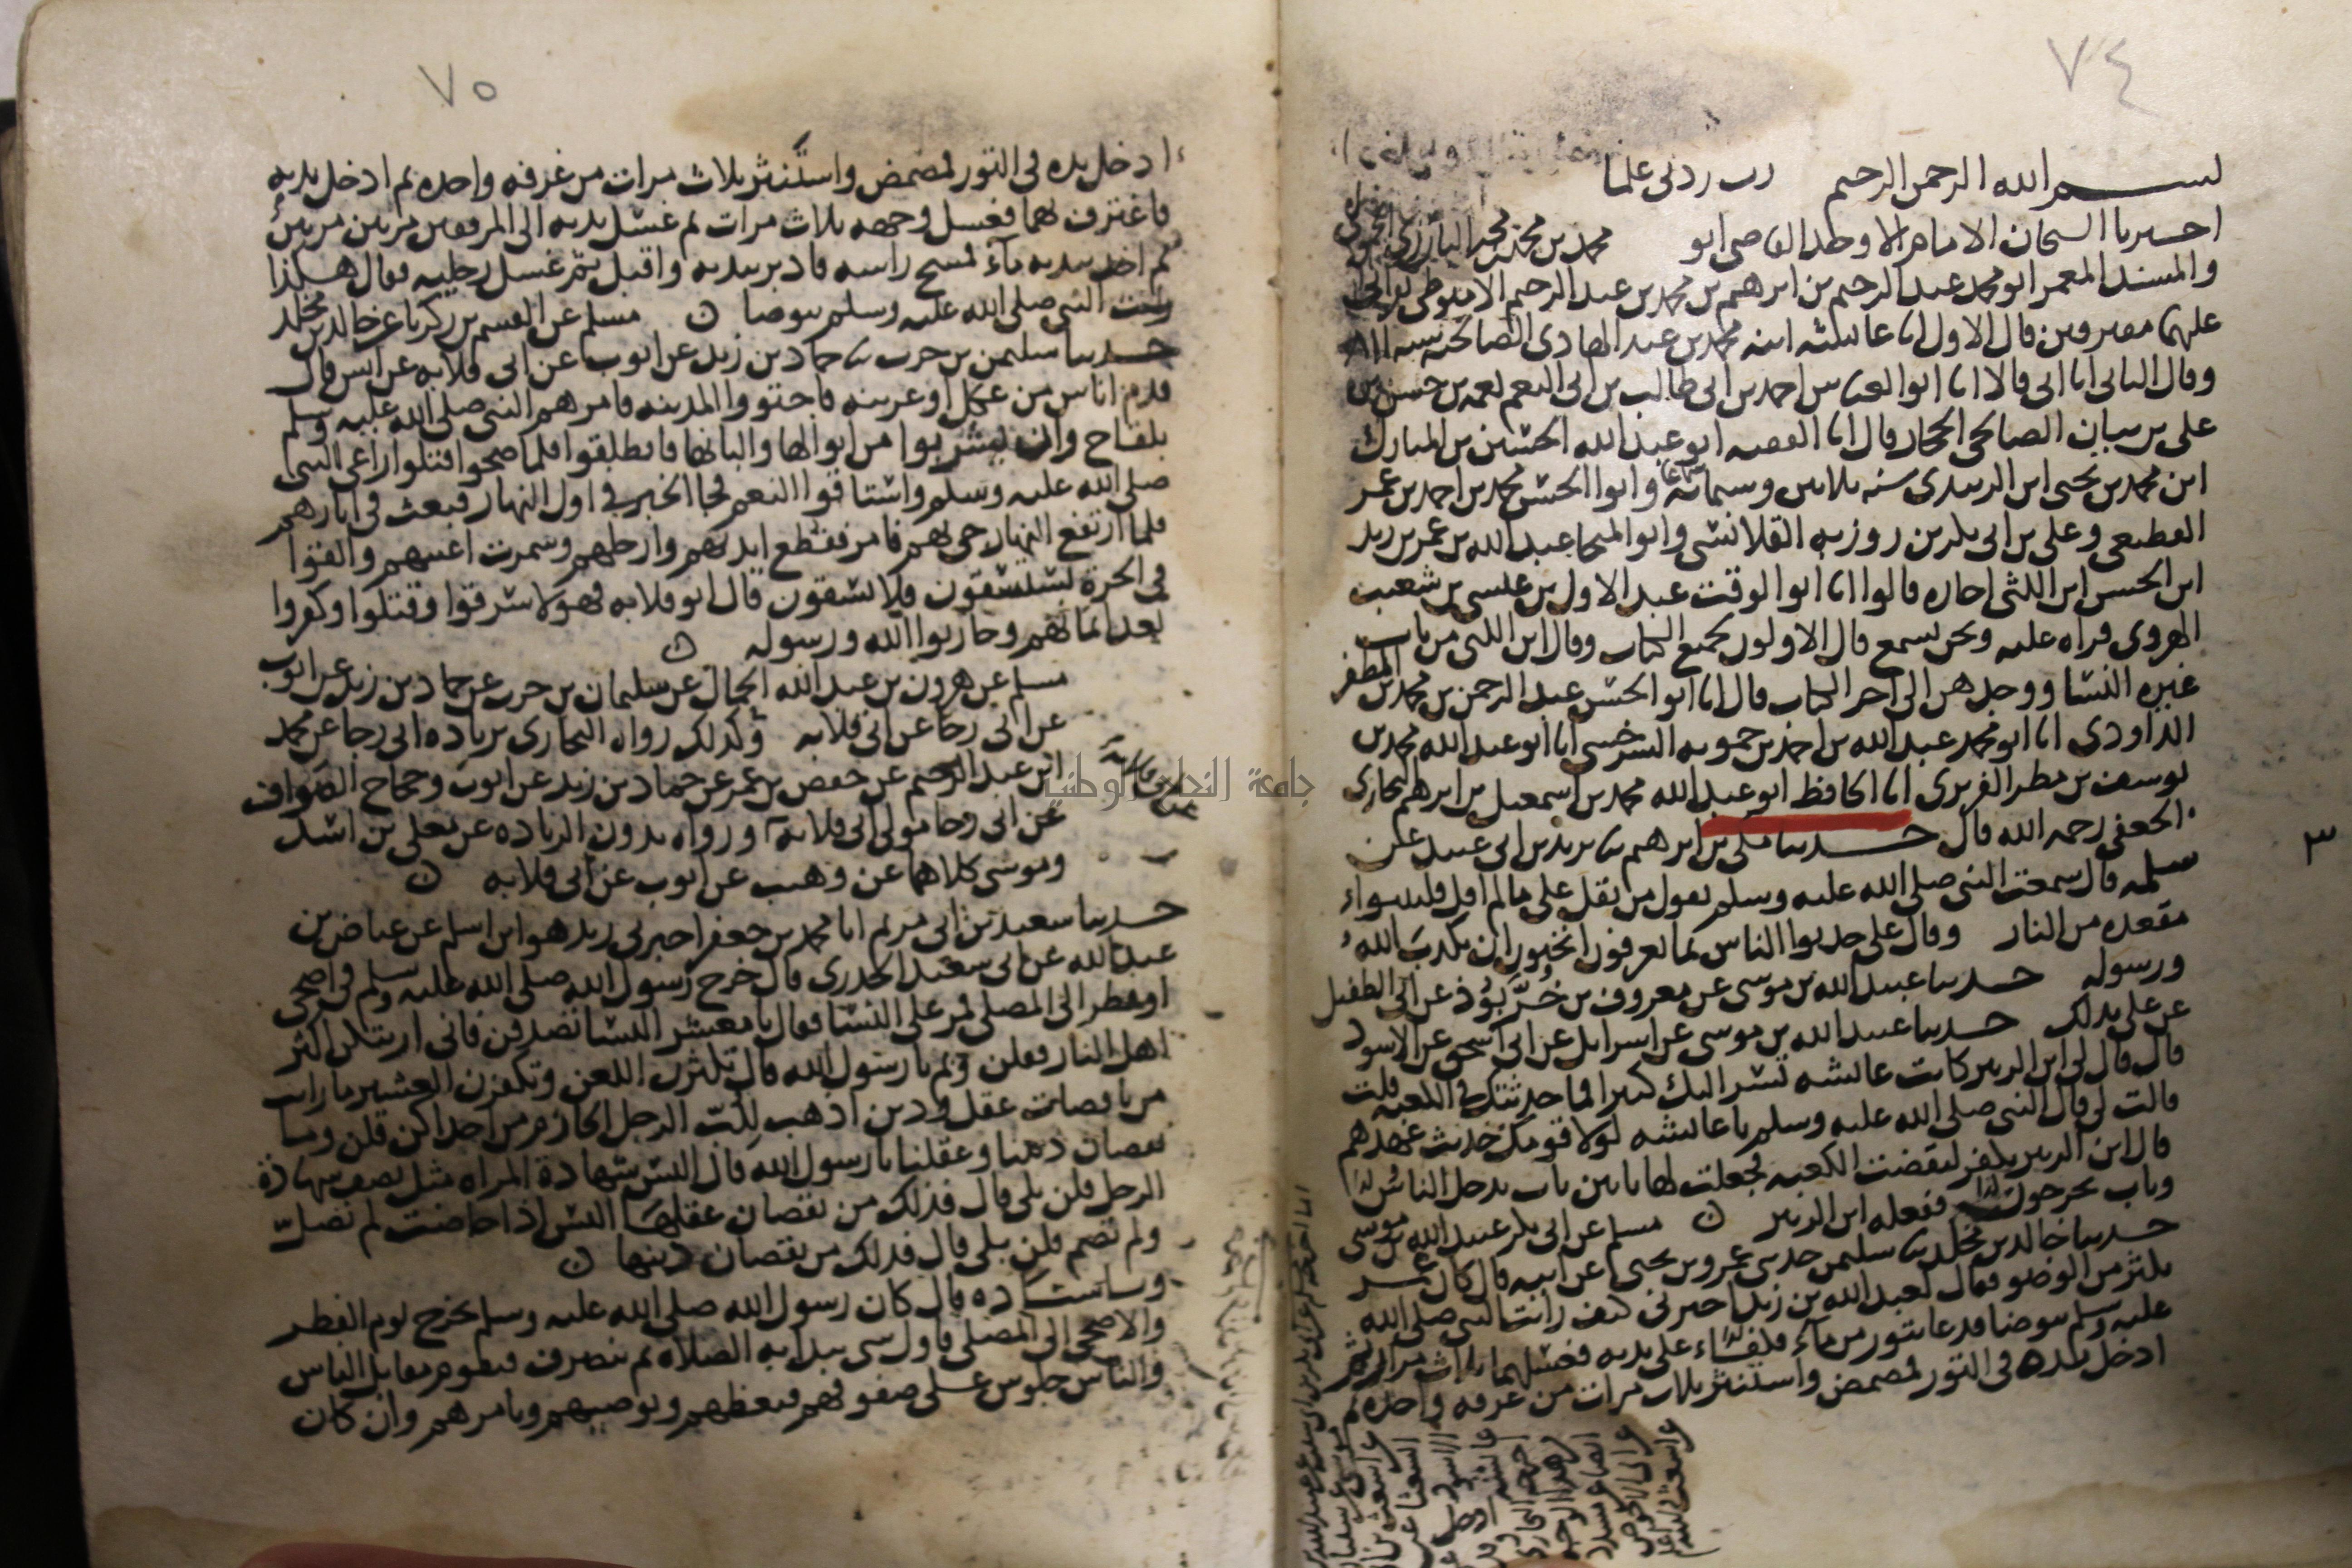 ٧٤
بسم الله الرحمن الرحيم رب زدني علما
اخبرنا الشيخان الامام الاوحد القاضي ابو محمد بن محمد بن محمد البارزي
والمسند المعمر ابو محمد عبد الرحيم بن ابرهيم بن محمد بن عبد الرحيم الاميوطي
عليهما مفترقين قال الاول انا عائشة ابنة محمد بن عبد الهادي الصالحية سنة
وقال الثاني انا ابي قالا انا ابو العباس احمد بن ابي طالب بن ابي النعم نعمة بن حسن بن
علي بن بيان الصالحي الحجار قال انا الفقيه ابو عبد الله الحسين بن المبارك
ابن محمد بن يحيى ابن الزبيدي سنة ثلاثين وستمائة وابو الحسن محمد بن احمد بن عمر
القطيعي وعلي بن ابي بكر بن روزبه القلانسي وابو المنجا عبد الله بن عمر بن زيد
ابن الحسن ابن اللتي اجازة قالوا انا ابو الوقت عبد الاول بن عيسى بن شعيب
الهروي قراه عليه ونحن نسمع قال الاولون بجميع الكتاب وقال ابن اللتي من باب
غيرة النسا ووجدهن الى اخر الكتاب قال انا ابو الحسن عبد الرحمن بن محمد بن المظفر
الداودي انا ابو محمد عبد الله بن احمد بن حمويه السرخسي انا ابو عبد الله محمد بن
يوسف بن مطر الفربري انا الحافظ ابو عبد الله محمد بن اسمعيل بن ابرهيم البخاري
الجعفي رحمه الله قال حدثنا مكي بن ابرهيم ثنا يزيد بن ابي عبيد عن
سلمه قال سمعت النبي صلى الله عليه وسلم يقول من يقل علي ما لم اقل فليتبواء
مقعده من النار وقال علي حدثوا الناس بما يعرفون اتحبون ان يكذب الله
ورسوله حدثنا عبيد الله بن موسى عن معروف بن خربوذ عن ابي الطفيل
عن علي بذلك حدثنا عبيد الله بن موسى عن اسرايل عن ابي اسحق عن الاسود
قال قال لي ابن الزبير كانت عائشه تسر اليك كثيرا فما حدثتك في الكعبه قلت
قالت لي قال النبي صلى الله عليه وسلم يا عائشه لولا قومك حديث عهدهم
قال ابن الزبير بكفر لنقضت الكعبه فجعلت لها بابين باب يدخل الناس
وباب يخرجون ففعله ابن الزبير ن مسلم عن ابي بكر عبيد الله بن موسى
حدثنا خالد بن مخلد ثنا سليمن حدثني عمرو بن يحيى عن ابيه قال كان عمي
يكثر من الوضو فقال لعبد الله بن زيد اخبرني كيف رايت النبي صلى الله
عليه وسلم يتوضا فدعا بتور من ماء فكفاء على يديه فغسلهما ثلاث مرار ثم
ادخل يده في التور فمضمض واستنثر ثلاث مرات من غرفه واحده ثم
٣
٧٥
ادخل يده في التور فمضمض واستنثر ثلاث مرات من غرفه واحده ثم ادخل يديه
فاغترف بهما فغسل وجهه ثلاث مرات ثم غسل يديه الى المرفقين مرتين مرتين
ثم اخذ بيديه ماء فمسح راسه فادبر بيديه واقبل ثم غسل رجليه فقال هكذا
رايت النبي صلى الله عليه وسلم يتوضا ن مسلم عن القسم بن زكريا عن خالد بن مخلد
حدثنا سليمن بن حرب ثنا حماد بن زيد عن ايوب عن ابي قلابه عن انس قال
قدم اناس من عكل او عرينه فاجتووا المدينه فامرهم النبي صلى الله عليه وسلم
بلقاح وان يشربوا من ابوالها والبانها فانطلقوا فلما صحوا قتلوا راعي النبي
صلى الله عليه وسلم واستاقوا النعم فجا الخبر في اول النهار فبعث في اثارهم
فلما ارتفع النهار جي بهم فامر فقطع ايديهم وارجلهم وسمرت اعينهم والقوا
في الحرة يستسقون فلا يسقون قال ابو قلابه فهولا سرقوا وقتلوا وكفروا
بعد ايمانهم وحاربوا الله ورسوله ن
مسلم عن هرون بن عبد الله الحمال عن سليمان بن حرب عن حماد بن زيد عن ايوب
عن ابي رجا عن ابي قلابه وكذلك رواه البخاري بزياده ابي رجا عن محمد
ابن عبد الرحيم عن حفص بن عمر عن حماد بن زيد عن ايوب وحجاج الصواف
عن ابي رجا مولى ابي قلابه ورواه بدون الزياده عن معلى بن اسد
وموسى كلاهما عن وهيب عن ايوب عن ابي قلابه ن
حدثنا سعيد بن ابي مريم انا محمد بن جعفر اخبرني زيد هو ابن اسلم عن عياض بن
عبد الله عن ابي سعيد الخدري قال خرج رسول الله صلى الله عليه وسلم في اضحى
او فطر الى المصلى فمر على النسا فقال يا معشر النسا تصدقن فاني اريتكن اكثر
اهل النار فقلن وبم يا رسول الله قال تكثرن اللعن وتكفرن العشير ما رايت
من ناقصات عقل ودين اذهب للب الرجل الحازم من احداكن قلن وما
نقصان ديننا وعقلنا يا رسول الله قال اليس شهادة المراه مثل نصف شهادة
الرجل قلن بلى قال فذلك من نقصان عقلها اليس اذا حاضت لم تصل
ولم تصم قلن بلى قال فذلك من نقصان دينها ن
وباسناده قال كان رسول الله صلى الله عليه وسلم يخرج يوم الفطر
والاضحى الى المصلى فاول شي يبدا به الصلاة ثم ينصرف فيقوم مقابل الناس
والناس جلوس على صفوفهم فيعظهم ويوصيهم ويامرهم وان كان
جامعة النجاح الوطنية